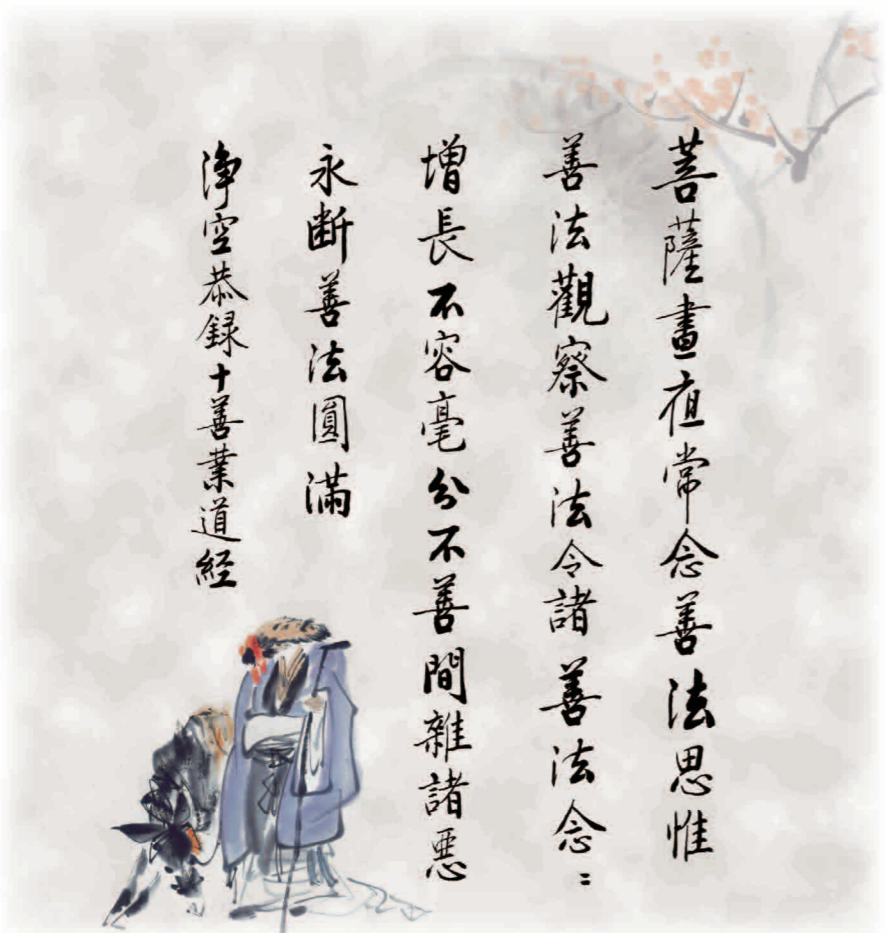 菩薩晝夜常念善法思惟
善法觀察善法令諸善法念〻
增長不容毫分不善間雜諸惡
永斷善法圓滿
淨空恭録十善業道経